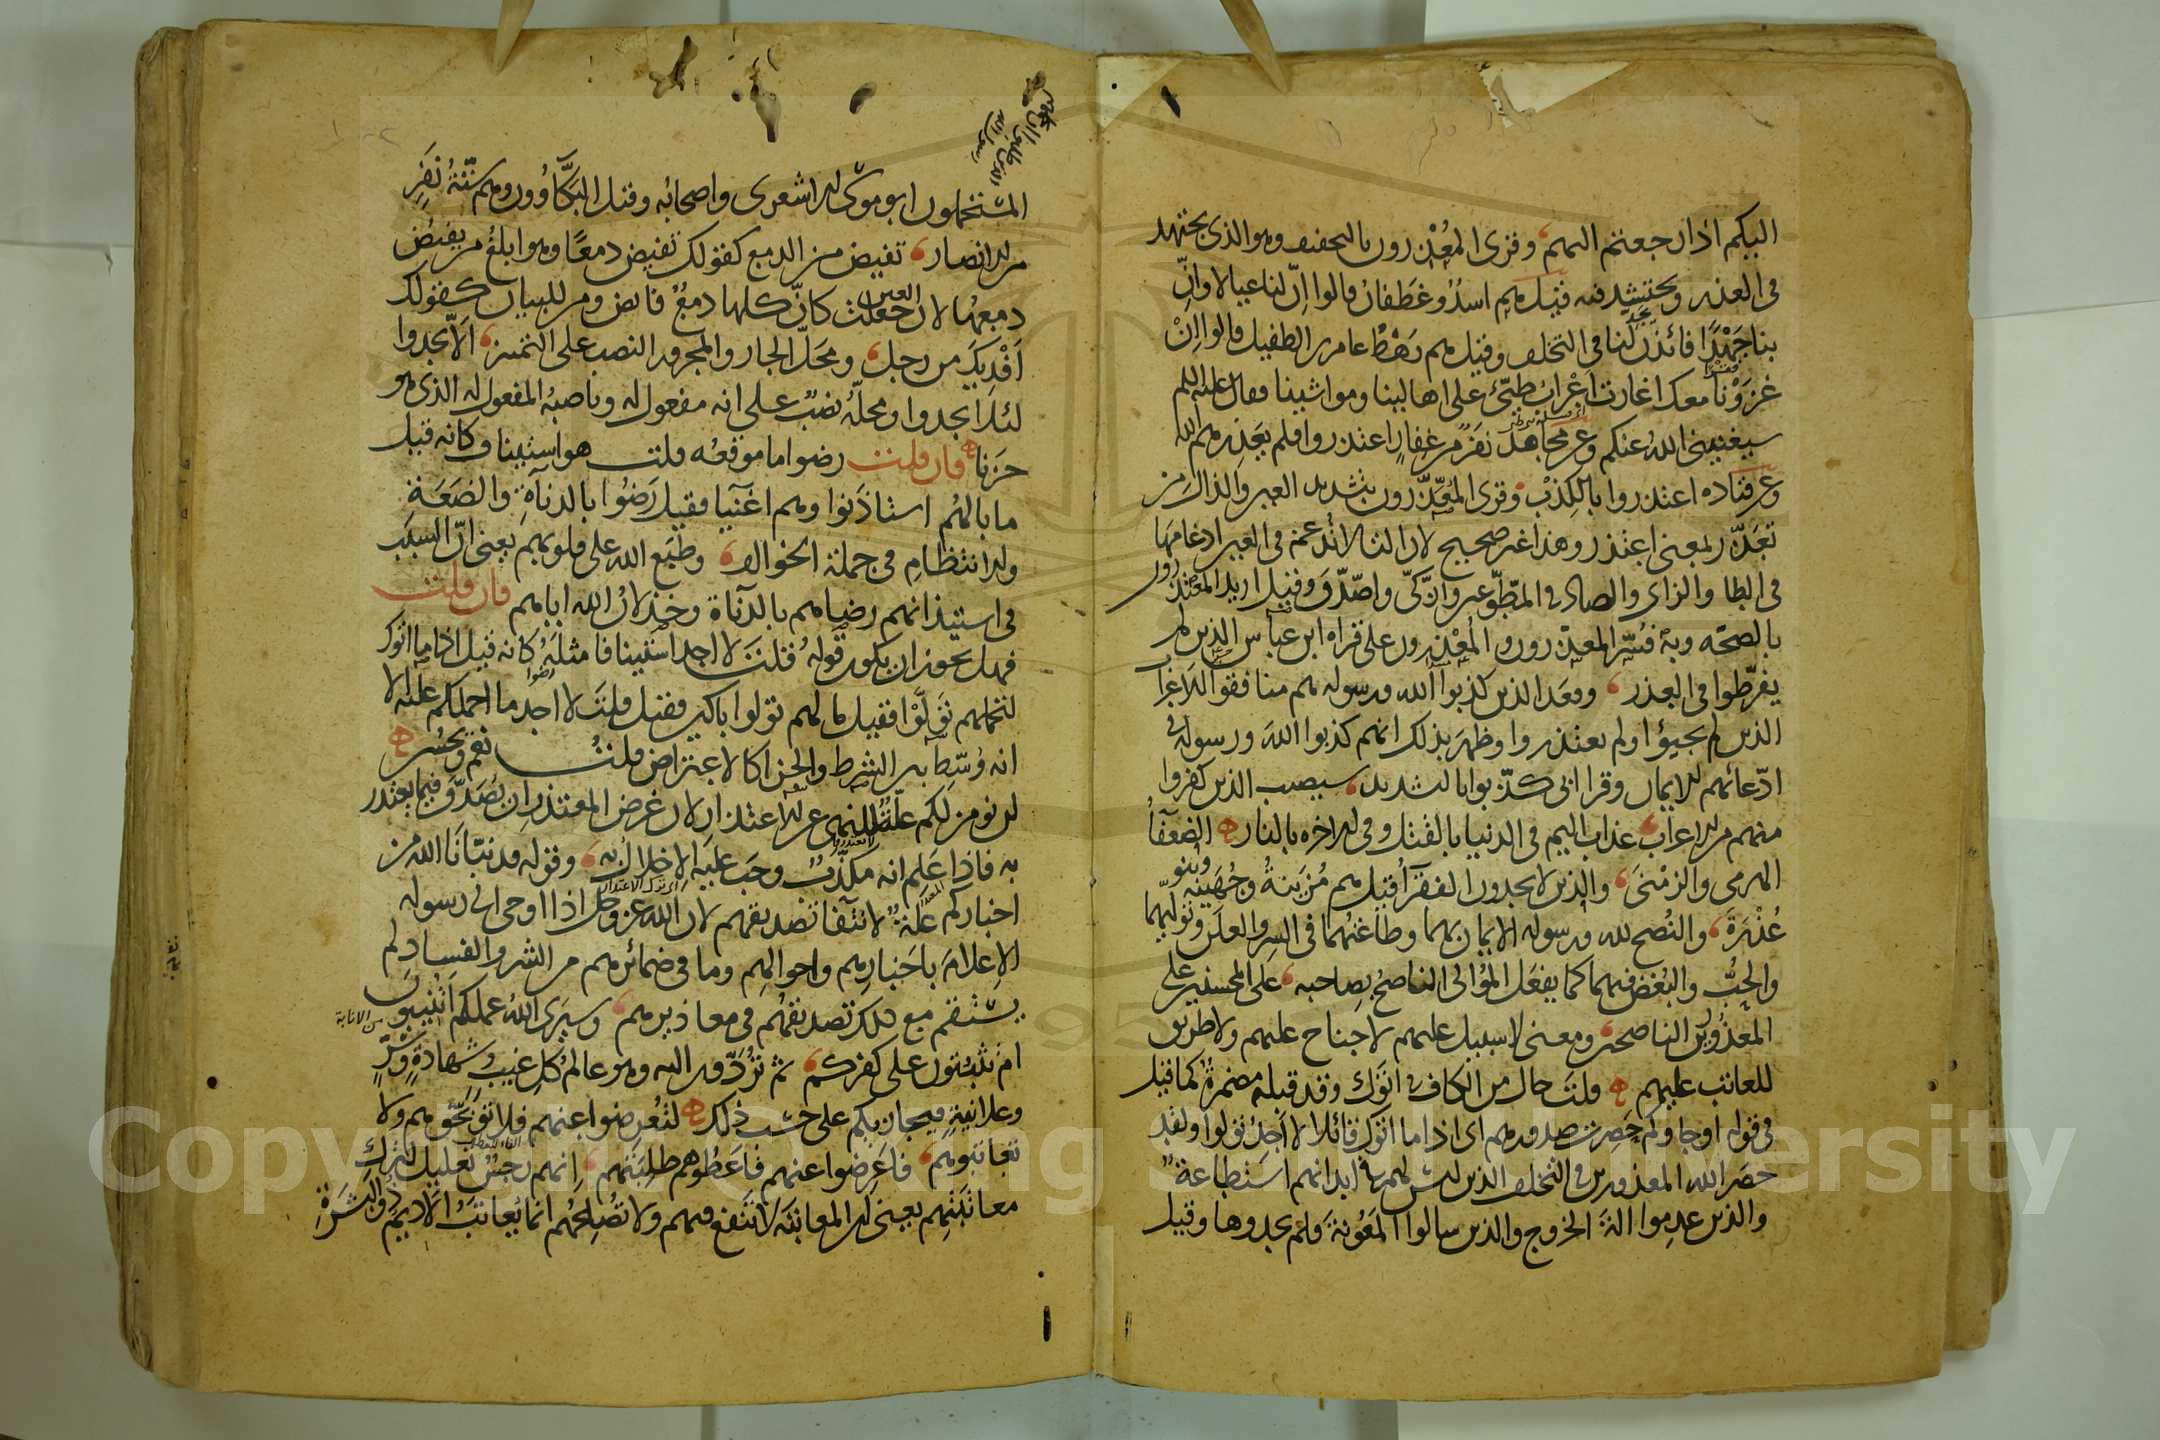 اليكم اذا رجعتم اليهم وقرى المُعْذِرون بالتخفيف وهو الذي يجتهد
في العذر ويحتشد فيه قيل هم اسدُ وغَطَفانُ قالوا اِنّ لنا عيالا واِنّ
بنا جَهْدًا فائذن لنا في التخلف وقيل هم رَهْطُ عامر بن الطفيل قالوا اِنْ
غزَوْنا معك اغارت اَعْرابُ طَيّئ على اهالينا ومواشينا فقال عليه السلم
سيغنيني اللهُ عنكم وعن مجاهد نفَرٌ من غِفارٍ اعتذروا فلم يعَذِرهم الله
وعن قتاده اعتذروا بالكِذْب وقرى المُعَّذِّرون بتشديد العين والذال من
تعَذّر بمعنى اعتذر وهذا غير صحيح لان التا لا تُدغم في العين ادغامَها
في الطا والزاى والصاد في المطّوّعين وازّكّى واصّدّق وقيل اريد المعتذرون
بالصحّه وبه فُسّر المعذّرون والمُعْذِرون على قراه ابن عباس الذين لم
يفرّطوا في العذر وقعَد الذين كذبوا الله ورسوله هم منافقوا الاَعْراب
الذين لم يجيؤا ولم يعتذروا وظهرَ بذلك انهم كذبوا اللهَ ورسولَه في
ادّعائهم الايمان وقرا ابي كذّبوا بالتشديد سيصيب الذين كفروا
منهم من الاعراب عذاب اليم في الدنيا بالقتل وفي الاخره بالنار الضعفاُ
الهرمى والزمْنَى والذين لا يجدون الفقرَآُ قيل هم مُزَينةُ وجُهَينة وبنو
عُذْرَة والنُصح لله ورسوله الايمان بهما وطاعتُهما في السر والعلن وتوليهما
والحبُّ والبُغض فيهما كما يفعَل المُوالى الناصحُ بصاحبه على المحسنين على
المعذُورين الناصحين ومعنى لا سبيل عليهم لا جناح عليهم ولا طريق
للعاتب عليهم قلتَ حال من الكاف في اتوك وقد قبله مضمرةٌ كما قيل
في قوله اوجاؤكم حَصِرَت صدورهم اى اذا ما اتوك قائلا لا اَجِدُ تولوا ولقد
حصَر الله المعذورين في التخلف الذين ليس لهم في ابدانهم استطاعة
والذين عدِموا الةَ الخروج والذين سالوا المَعُونةَ فلم يجدوها وقيل
المستحملون ابو موسى الاشعرى واصحابُه وقيل البكَّآؤُون وهم ستّةُ نفَرٍ
من الانصار تفيض من الدمع كقولك تفيض دمعًا وهو ابلغُ من يفيض
دمعها لان العين جُعلت كانّ كلها دمعٌ فائض ومن للبيان كقولك
اَفْدِيكَ من رجل ومحَلّ الجار والمجرور النصب على التمييز الّا يجدوا
لئلا يجدوا ومحلّه نصْبٌ على انه مفعول له وناصبُه المفعول له الذى هو
حزَنا فان قلت رضوا ما موقعُه قلت هو استيناف كانه قيل
ما بالهُم استاذَنوا وهم اغنيا فقيل رَضُوا بالدنآة والضَعَة
والانتظامِ في جملة الخوالف وطبَع الله على قلوبهم يعنى انّ السبَب
في استيذانهم رضاهم بالدنآة وخذلانُ الله اياهم فان قلت
فهل يجوز ان يكون قولُه قلتَ لا اجد استينافا مثلَه كانه قيل اذا ما اتوك
لتحملهم تَوَلَّوْا فقيل ما لهم تولوا باكين فقيل قلتَ لا اجد ما احملكم عليه الا
انه وُسّط بين الشرط والجزا كالاعتراض قلتُ نعم ويحسُن
لن نومن لكم علّةٌ للنهى عن الاعتذار لان غرض المعتذر ان يُصَدَّق فيما يعتذر
به فاذا عَلِم انه مكذَّب وجَب عليه الاخلالُ به وقوله قد نبّانا الله من
اخباركم علّةٌ لانتفا تصديقهم لان الله عز وجل اذا اوحى الى رسوله
الاعلامَ باخبارهم واحوالهم وما في ضمائرهم من الشر والفساد لم
يستقم مع ذلك تصديقُهم في معاذيرهم وسيَرَى اللهُ عملكم اتُنيبون
من الانابة
ام تثبُتون على كفركم ثم تُرَدّون اليه وهو عالمُ كلِ غيبٍ وشهادةٍ وسرّ
وعلانيةٍ فيجازيكم على حسَب ذلك لتُعرضوا عنهم فلا توَبّخوهم ولا
تعاتبوهم فاَعرِضوا عنهم فاَعطُوهم طلِبَتهم انهم رجسٌ تعليل لترك
معاتبتهم يعنى ان المعاتَبة لا تَنفع فيهم ولا تُصلِحُهم انما يُعاتَبُ الاَديمُ ذُو البَشَرَةِ